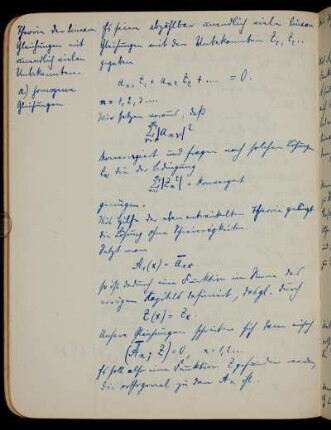 Theorie der linearen
Gleichungen mit
unendlich vielen
Unbekannten.
a) homogene
Gleichungen
Es seien abzählbar unendlich viele lineare
Gleichungen mit den Unbekannten Z₁, Z₂ ...
gegeben
aₙ₁ Z₁ + aₙ₂ Z₂ + .... = 0.
n = 1, 2, 3....
Wir setzen voraus, daß
∑|aₙᵣ|²
konvergiert und fragen nach solchen Lösungen
die der Bedingung
∑|Zₙ²| = konvergent
genügen.
Mit Hilfe der oben entwickelten Theorie gelingt
die Lösung ohne Schwierigkeiten.
Setzt man
Aₙ(x) = āₙₓ
so ist dadurch eine Funktion im Sinne des
vorigen Kapitels definiert, desgl. durch
Z(x) = Zₓ.
Unsere Gleichungen schreiben sich dann einfach
(Āₙ; Z) = 0, n = 1, 2...
Es soll also eine Funktion Z gefunden werden,
die orthogonal zu den Aₙ ist.